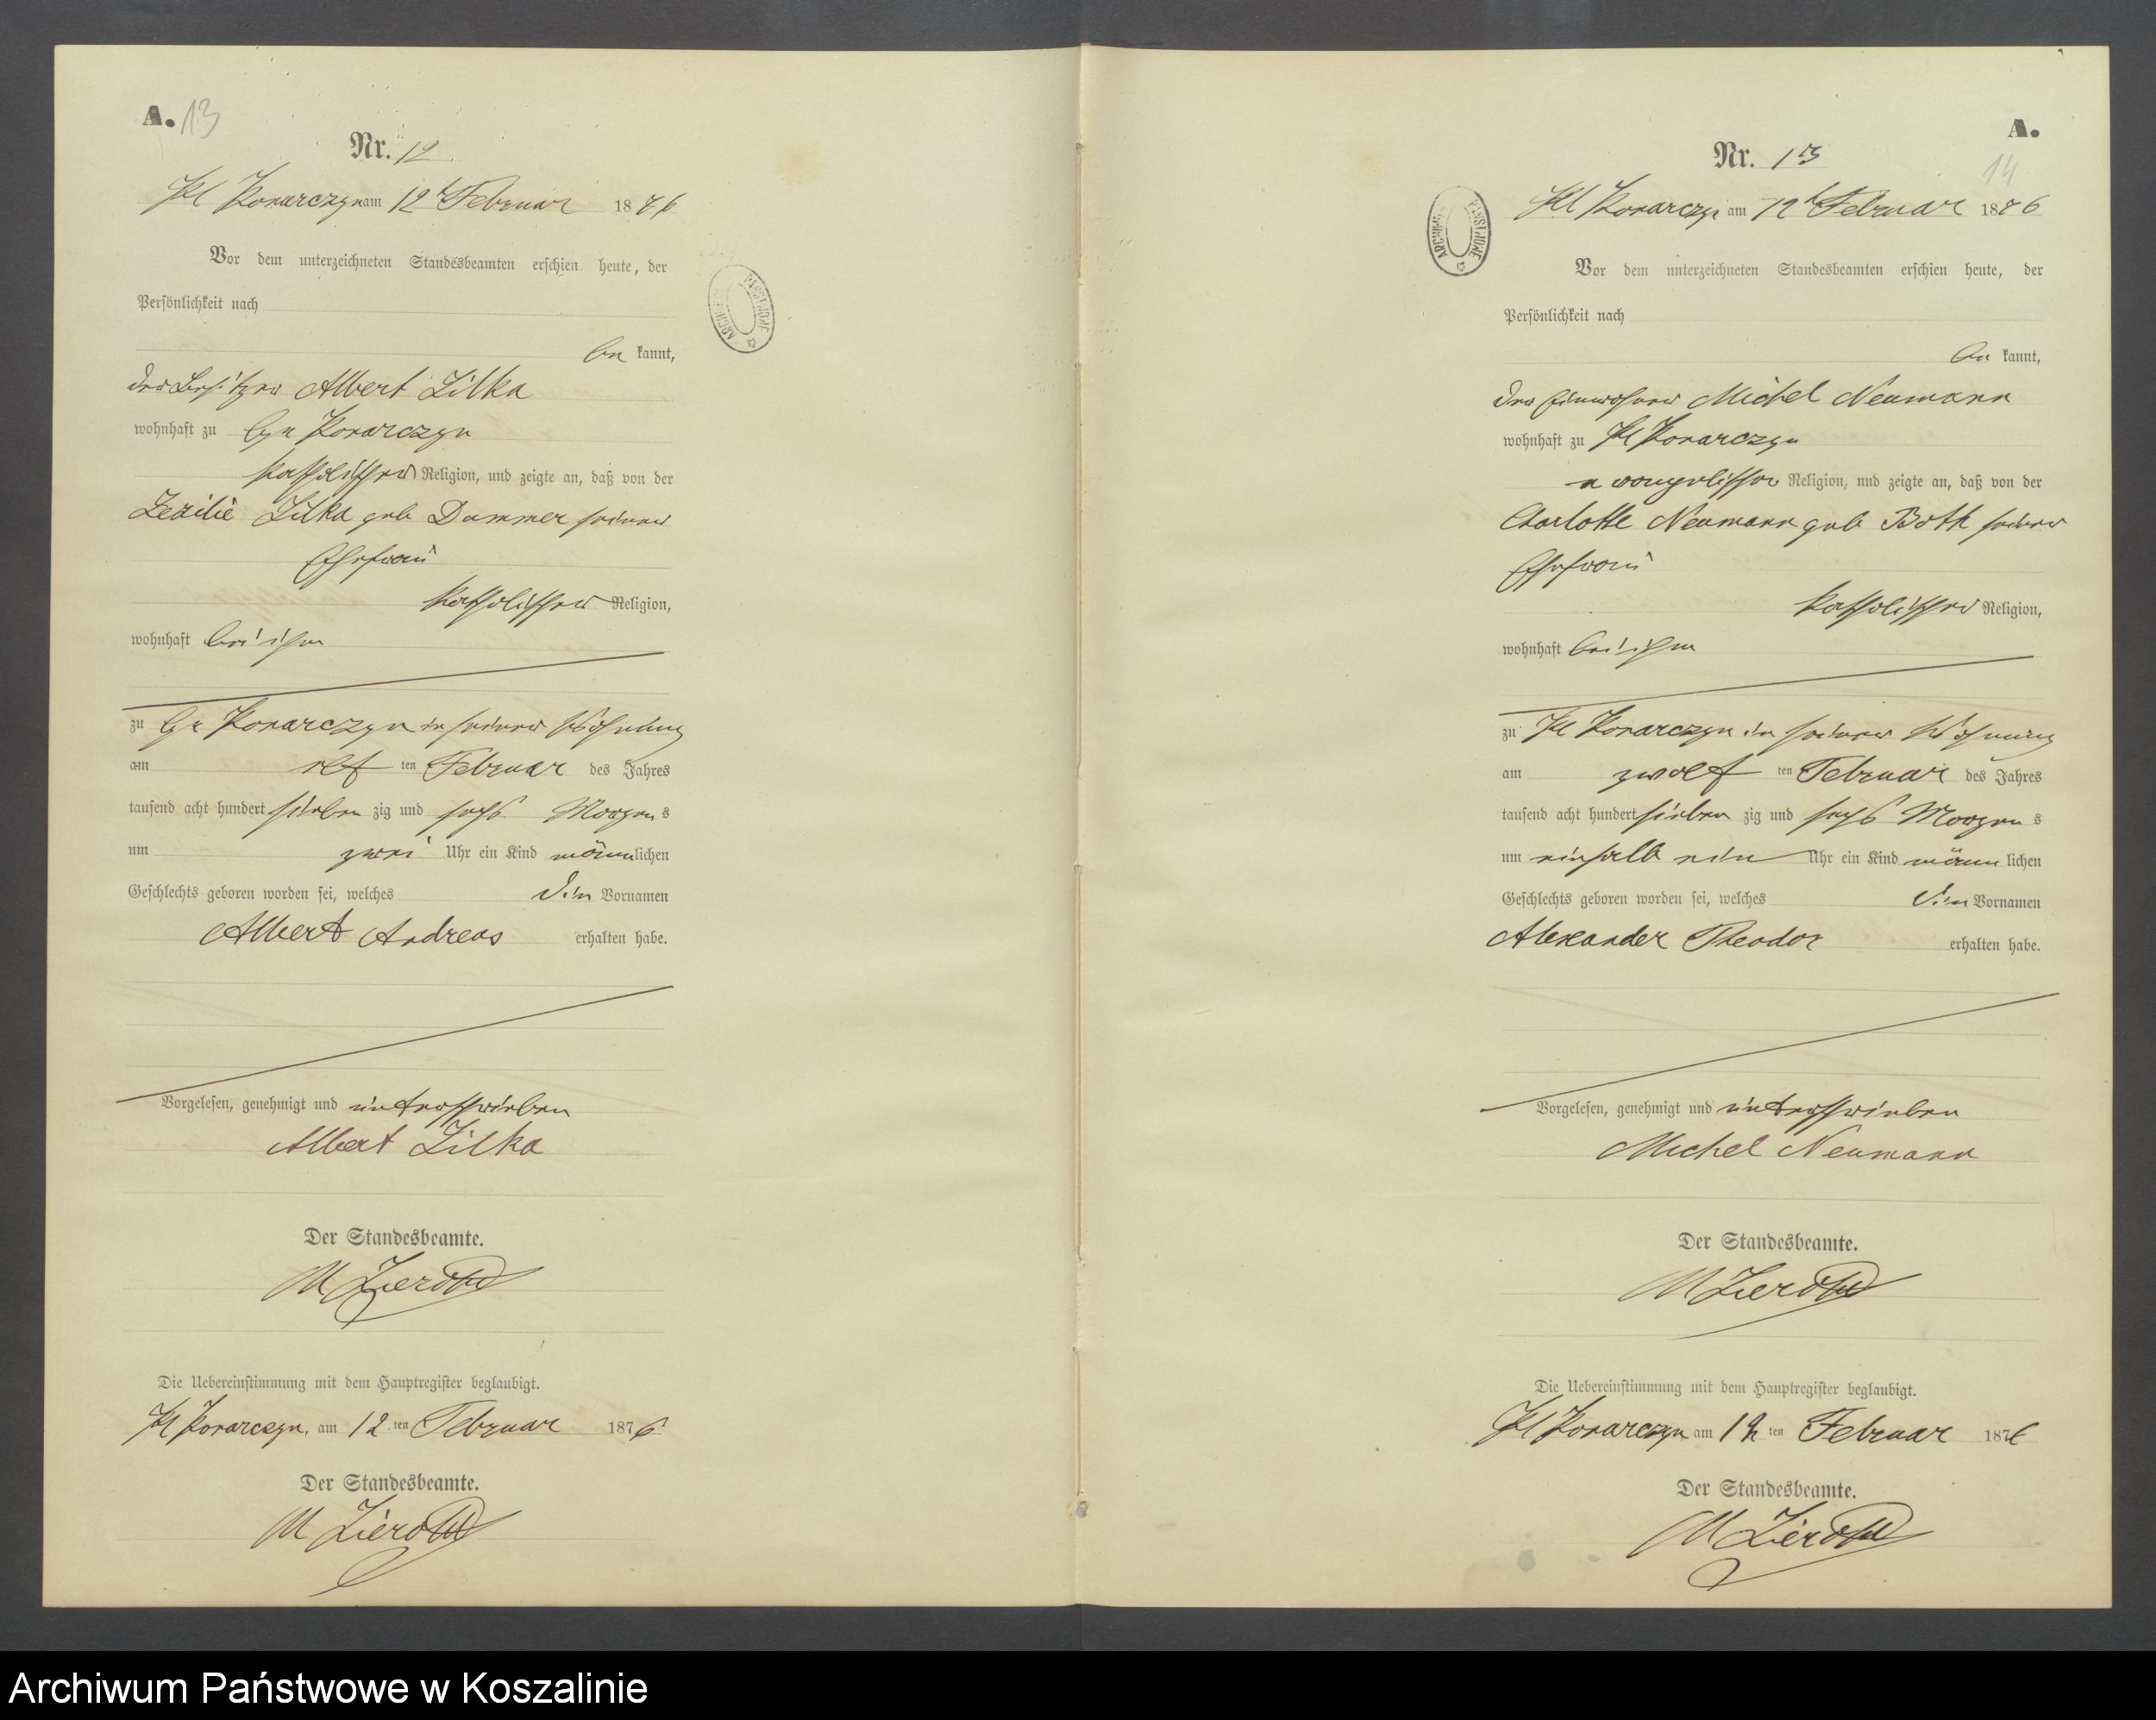 A. 13
Nr. 12
Kl Konarczyn am 12t Februar 1876
Vor dem unterzeichneten Standesbeamten erschien heute, der
Persönlichkeit nach
be kannt,
der Besitzer Albert Lilka
wohnhaft zu Gr Konarczyn
katholischer Religion, und zeigte an, daß von der
Zezilie Lilka geb Dammer seiner
Ehefrau
katholischer Religion,
wohnhaft bei ihm
zu Gr Konarczyn in seiner Wohnung
am elf ten Februar des Jahres
tausend acht hundert sieben zig und sechs Morgens
um zwei Uhr ein Kind männlichen
Geschlechts geboren worden sei, welches die Vornamen
Albert Andreas erhalten habe.
Vorgelesen, genehmigt und unterschrieben
Albert Lilka
Der Standesbeamte.
M
Die Uebereinstimmung mit dem Hauptregister beglaubigt.
Kl Konarczyn, am 12 ten Februar 1876
Der Standesbeamte.
M
A.
14
Nr. 13
Kl Konarczyn am 12t Februar 1876
ARCHIWUM PAŃSTWOWE
Vor dem unterzeichneten Standesbeamten erschien heute, der
Persönlichkeit nach
be kannt,
der Einwohner Michel Neumann
wohnhaft zu Kl Konarczyn
evangelischer Religion, und zeigte an, daß von der
Charlotte Neumann geb Both seiner
Ehefrau
katholischer Religion,
wohnhaft bei ihm
zu Kl Konarczyn in seiner Wohnung
am zwölf ten Februar des Jahres
tausend acht hundert sieben zig und sechs Morgen s
um einhalb ein Uhr ein Kind männ lichen
Geschlechts geboren worden sei, welches die Vornamen
Alexander Theodor erhalten habe.
Vorgelesen, genehmigt und unterschrieben
Michel Neumann
Der Standesbeamte.
M
Die Uebereinstimmung mit dem Hauptregister beglaubigt.
Kl Konarczyn am 12 ten Februar 1876
Der Standesbeamte.
M
Archiwum Państwowe w Koszalinie